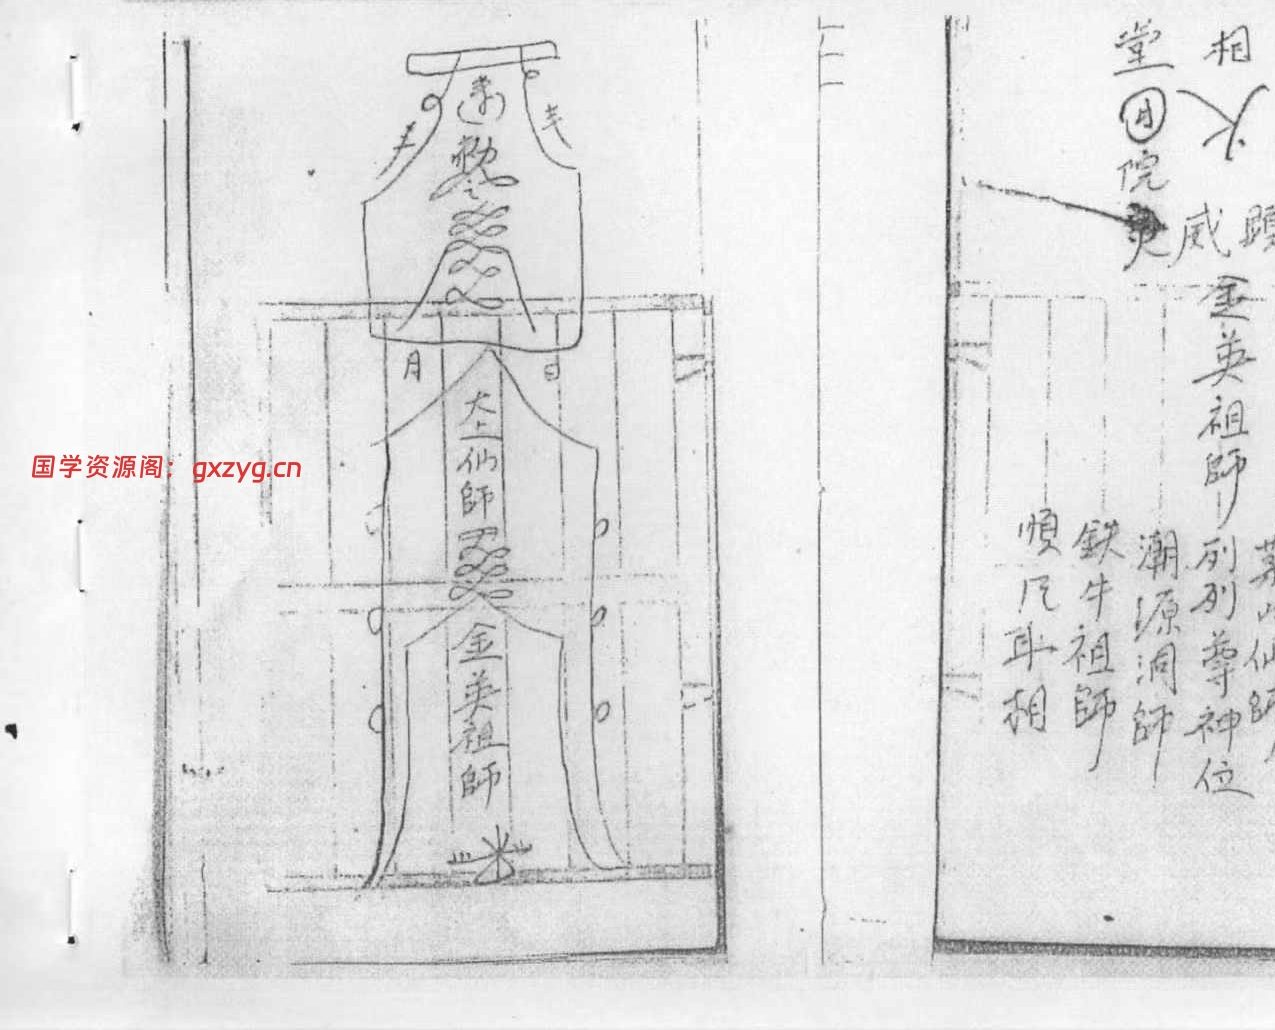 敕令
月 日
大上仙師
金英祖師
国学资源阁：gxzyg.cn
相
堂
月
院
威
金英祖師列列尊神位
仙師
潮源洞師
鉄牛祖師
順耳相